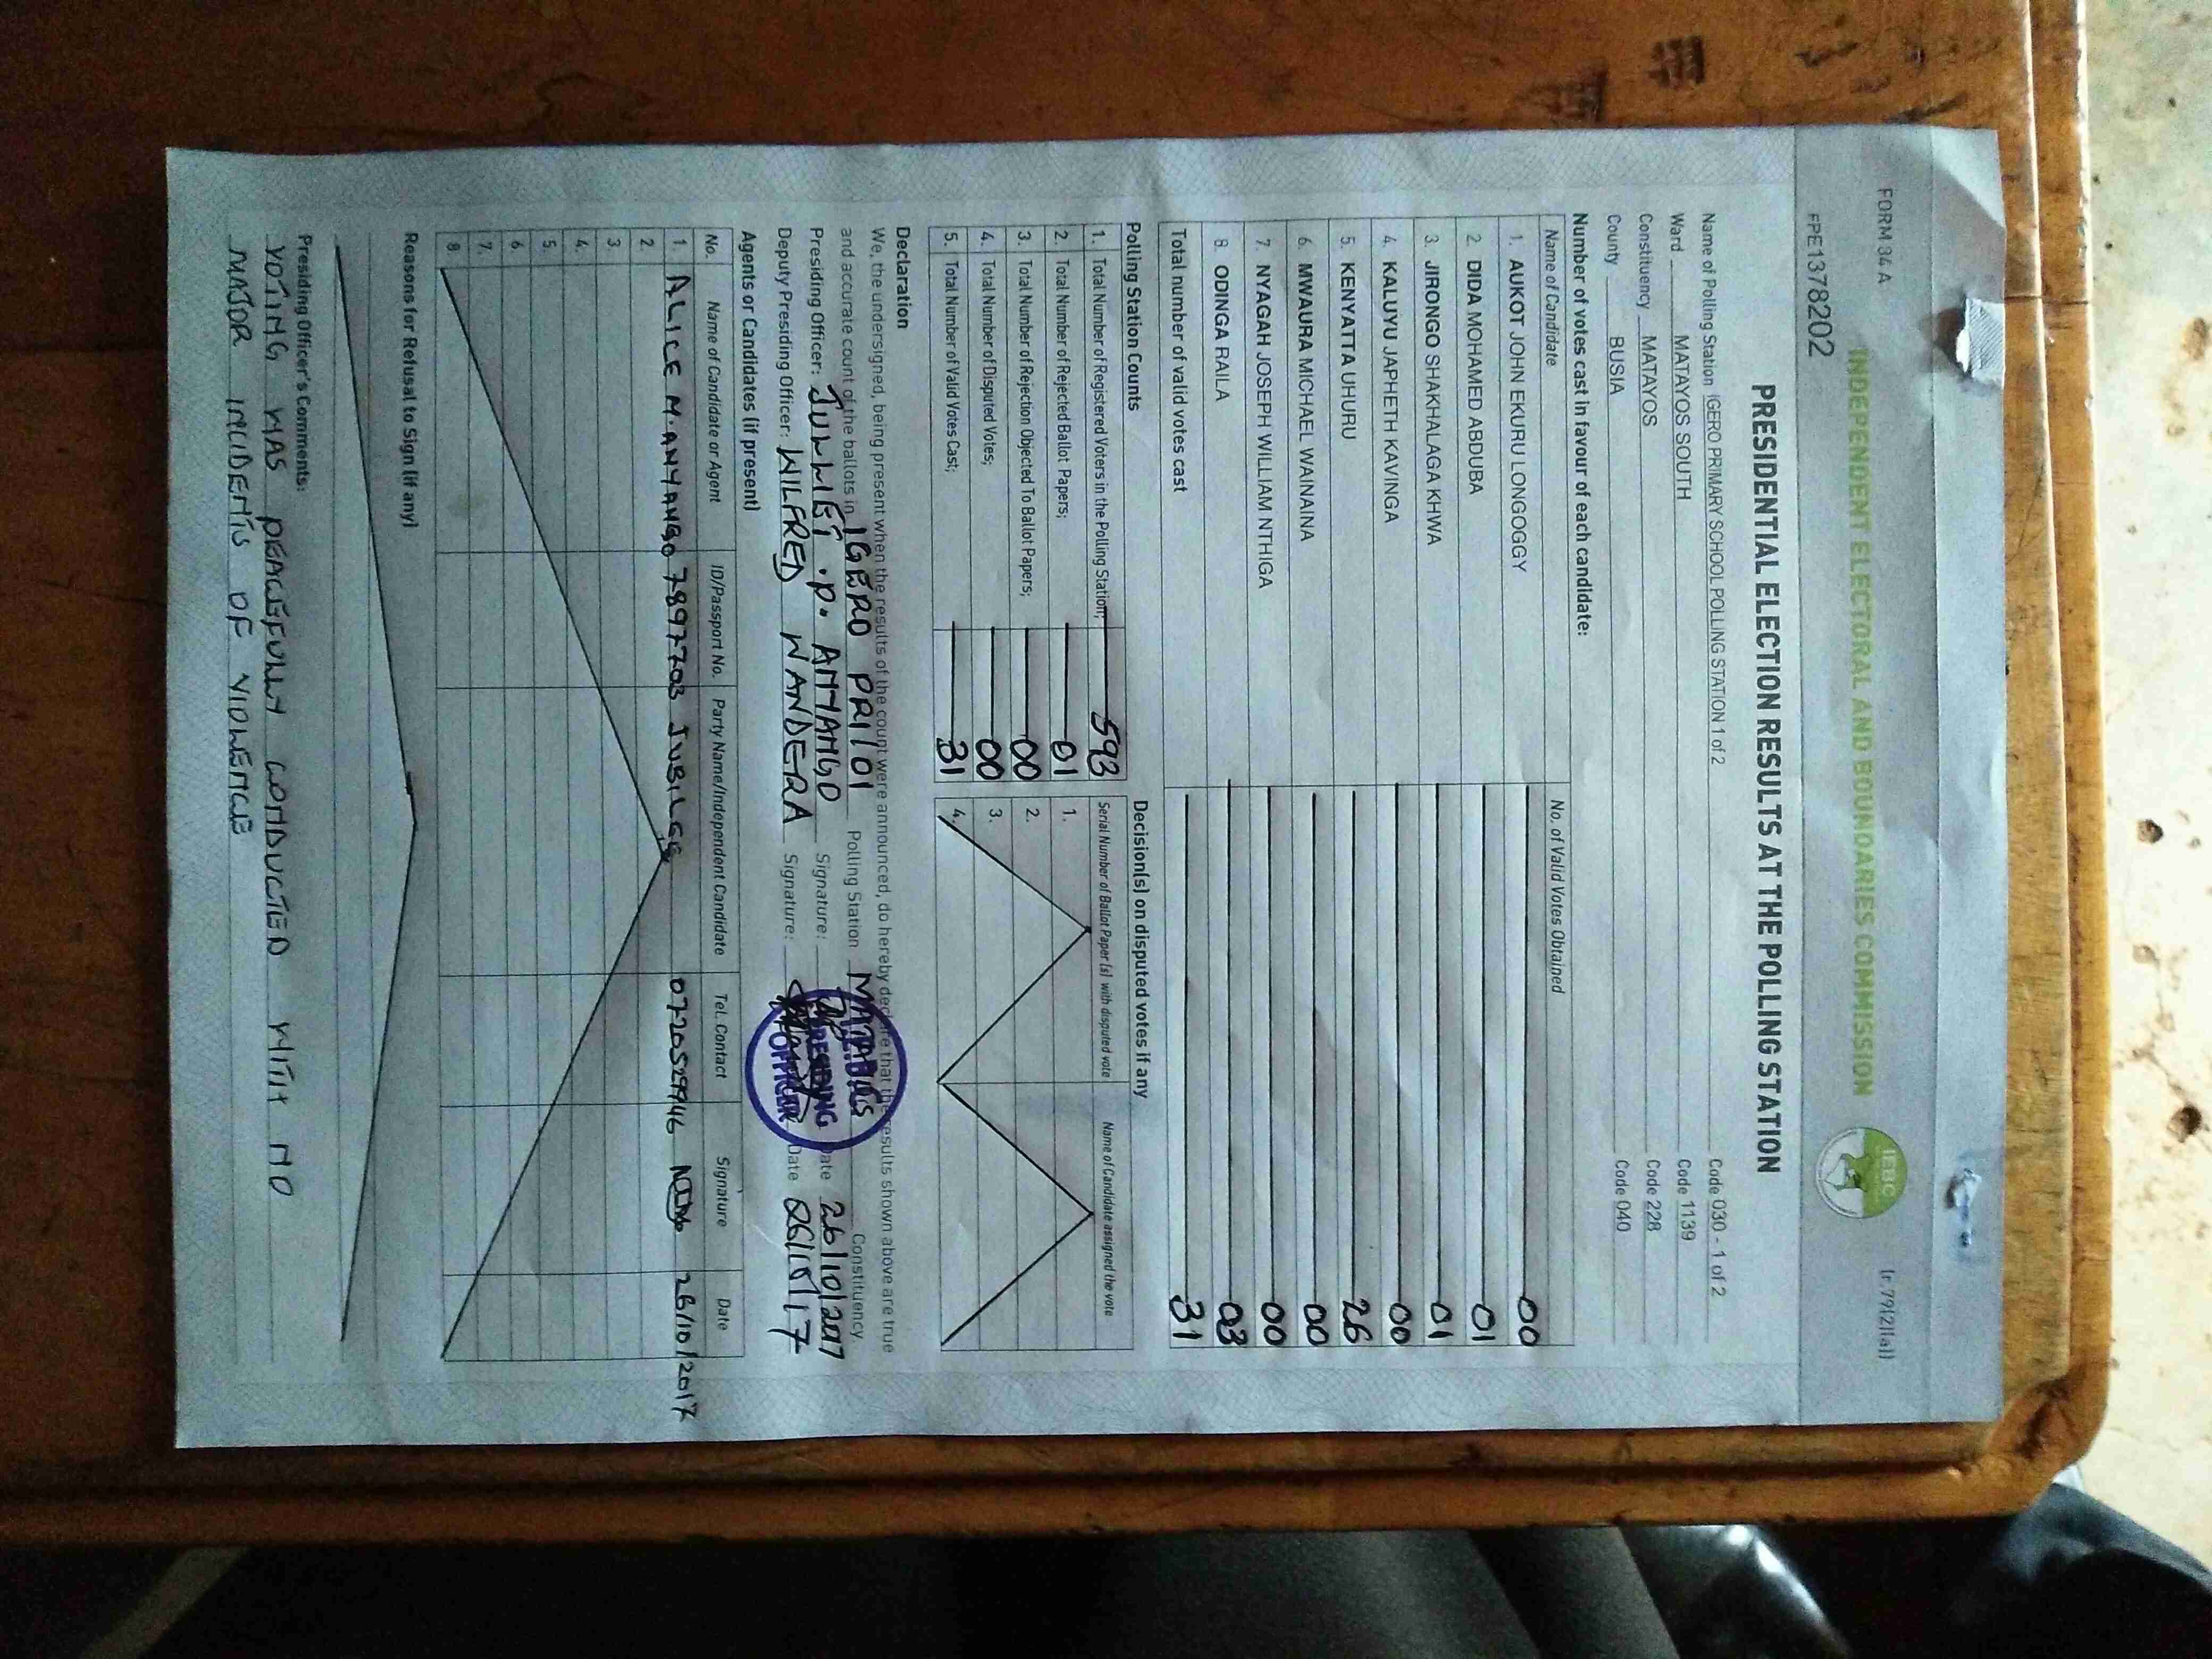 FORM 34 A
(r.79(2)(a))
INDEPENDENT ELECTORAL AND BOUNDARIES COMMISSION
IEBC
FPE1378202
PRESIDENTIAL ELECTION RESULTS AT THE POLLING STATION
Name of Polling Station IGERO PRIMARY SCHOOL POLLING STATION 1 of 2 Code 030 - 1 of 2
Ward MATAYOS SOUTH Code 1139
Constituency MATAYOS Code 228
County BUSIA Code 040
Number of votes cast in favour of each candidate:
Name of Candidate No. of Valid Votes Obtained
1. AUKOT JOHN EKURU LONGOGGY 00
2. DIDA MOHAMED ABDUBA 01
3. JIRONGO SHAKHALAGA KHWA 01
4. KALUYU JAPHETH KAVINGA 00
5. KENYATTA UHURU 26
6. MWAURA MICHAEL WAINAINA 00
7. NYAGAH JOSEPH WILLIAM NTHIGA 00
8. ODINGA RAILA 03
Total number of valid votes cast 31
Polling Station Counts Decision(s) on disputed votes if any
1. Total Number of Registered Voters in the Polling Station; 593 Serial Number of Ballot Paper (s) with disputed vote Name of Candidate assigned the vote
2. Total Number of Rejected Ballot Papers; 01 1.
3. Total Number of Rejection Objected To Ballot Papers; 00 2.
4. Total Number of Disputed Votes; 00 3.
5. Total Number of Valid Votes Cast; 31 4.
Declaration
We, the undersigned, being present when the results of the count were announced, do hereby declare that the results shown above are true
and accurate count of the ballots in IGERO PRI 101 Polling Station MATAYOS Constituency
Presiding Officer: JULLIET .P. AMYANGO Signature: Date 26/10/2017
Deputy Presiding Officer: WILFRED WANDERA Signature: Date 26/10/17
PRESIDING
OFFICER
Agents or Candidates (if present)
No. Name of Candidate or Agent ID/Passport No. Party Name/Independent Candidate Tel. Contact Signature Date
1. ALICE M. ANYANGO 7897703 JUBILEE 0720529946 26/10/2017
2.
3.
4.
5.
6.
7.
8.
Reasons for Refusal to Sign (if any)
Presiding Officer's Comments:
VOTING WAS PEACEFULLY CONDUCTED WITH NO
MAJOR INCIDENTS OF VIOLENCE